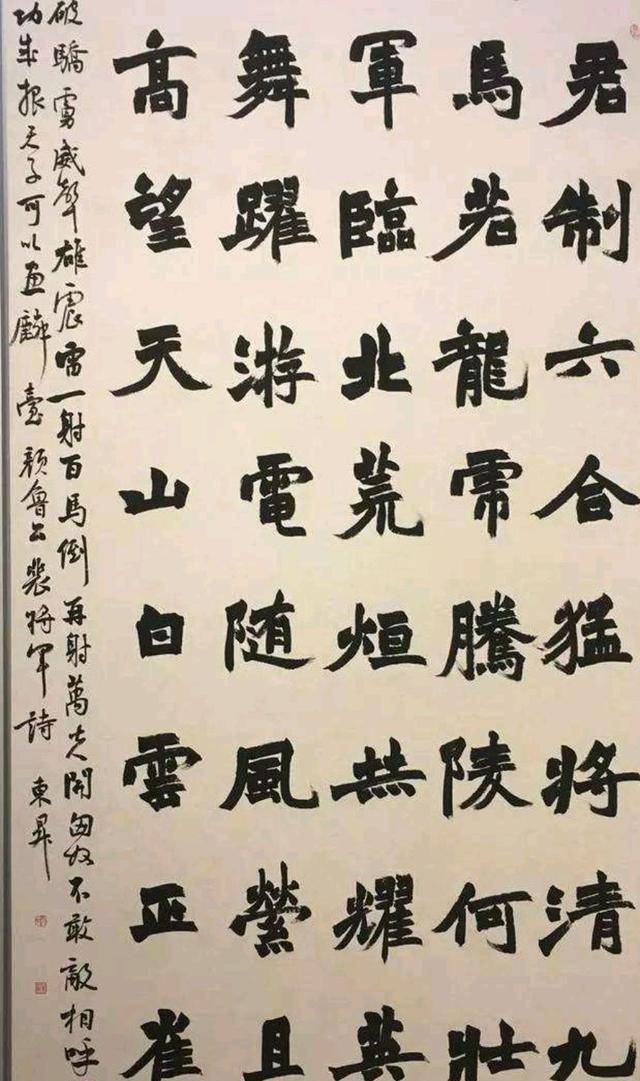 君制六合猛将清九
馬若龍虎騰陵何壯
軍臨北荒烜赫耀英
舞躍游電随風縈且
高望天山白雲正崔
破驕虜威聲雄震雷一射百馬倒再射萬夫開匈奴不敢敵相呼
功成報天子可以畫麟臺 顏魯公裴将軍詩 東昇